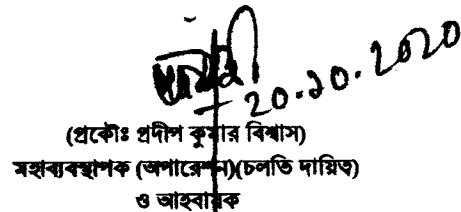 ২০.১০.২০২০
(প্রকৌঃ প্রদীপ কুমার বিশ্বাস)
মহাব্যবস্থাপক (অপারেশন)(চলতি দায়িত্ব)
ও আহবায়ক